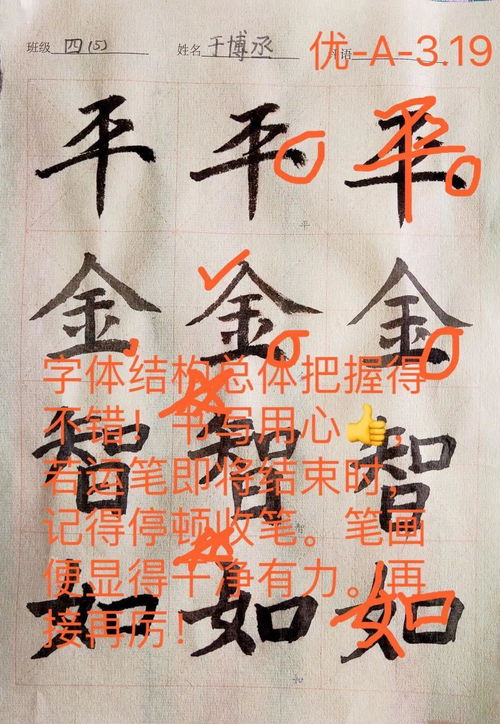 班级 四(5) 姓名 于博丞 评语 优-A-3.19
平 平 平
平
金 金 金
字体结构总体把握得
不错！书写用心👍，
智 智 智
若运笔即将结束时，
记得停顿收笔。笔画
便显得干净有力。再
接再厉！
如 如 如
如